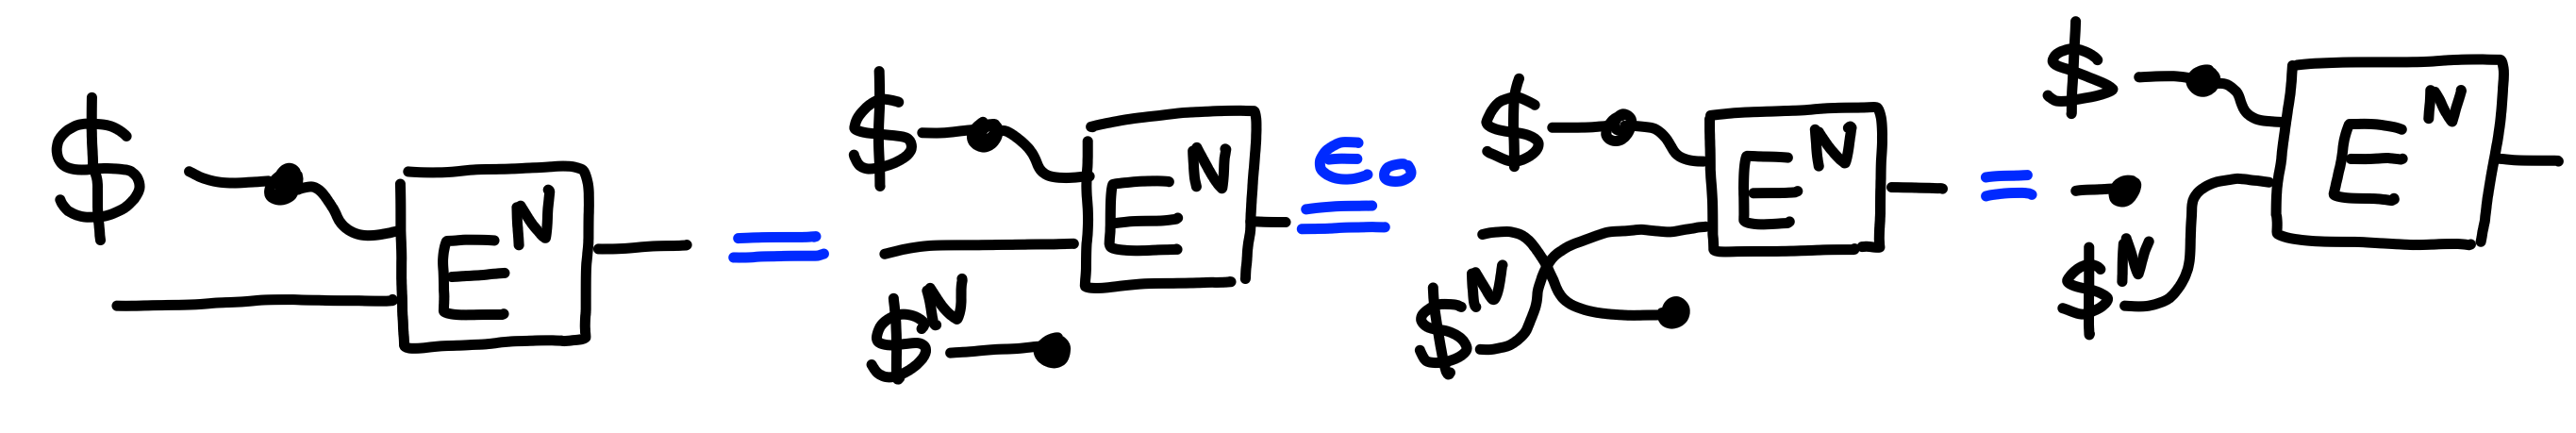 $ E^N = $ E^N $^N ε₀ = $ E^N $^N = $ E^N $^N